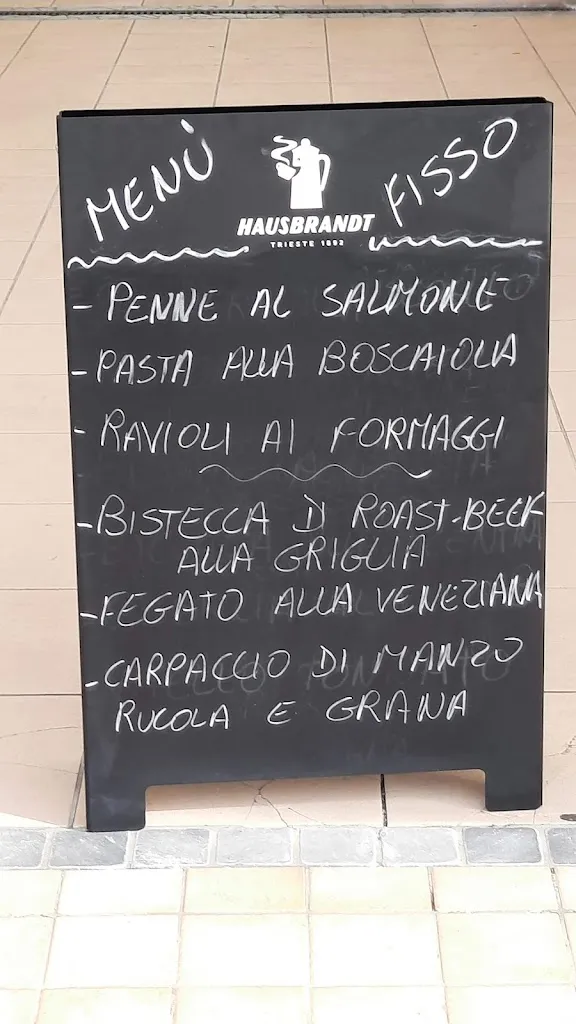 MENÙ FISSO
HAUSBRANDT
TRIESTE 1892
- PENNE AL SALMONE
- PASTA ALLA BOSCAIOLA
- RAVIOLI AI FORMAGGI
- BISTECCA DI ROAST-BECK
ALLA GRIGLIA
- FEGATO ALLA VENEZIANA
- CARPACCIO DI MANZO
RUCOLA E GRANA